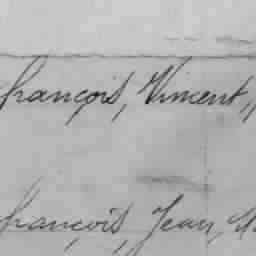 françois, Vincent,
françois, Jean,